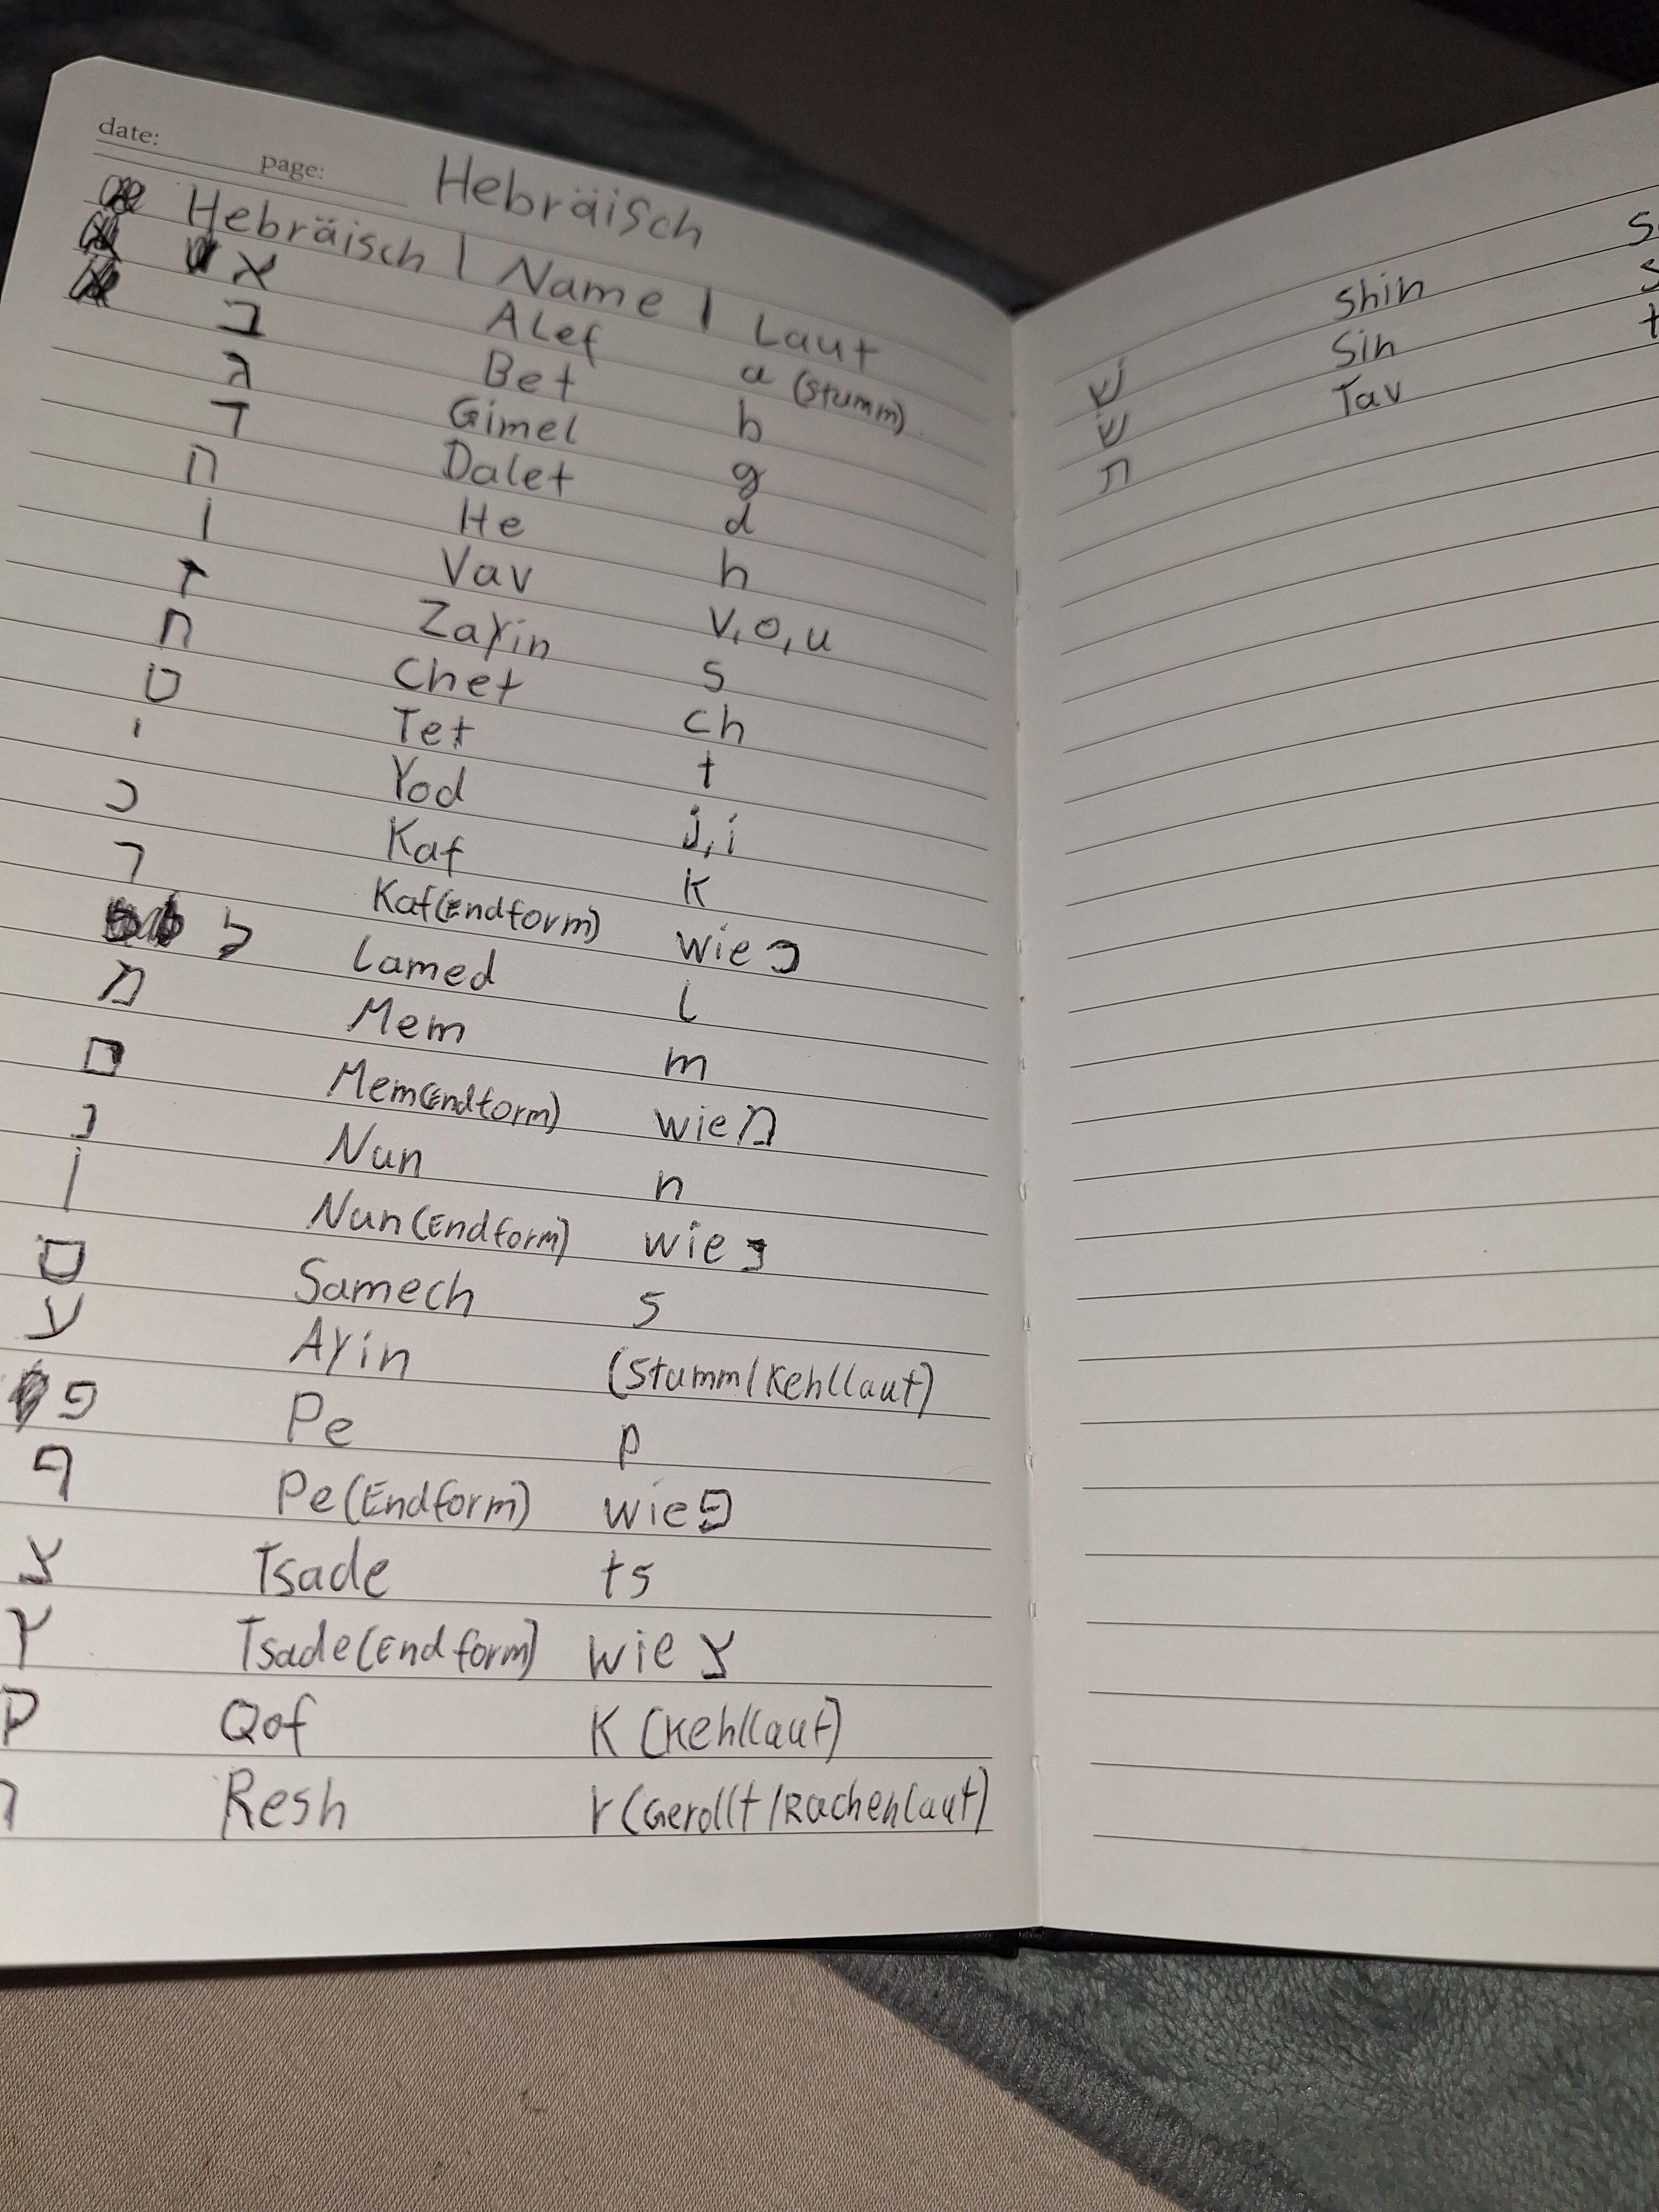 date:
page:
Hebräisch
Hebräisch | Name | Laut
א Alef a (stumm)
ב Bet b
ג Gimel g
ד Dalet d
ה He h
ו Vav v, o, u
ז Zayin s
ח Chet ch
ט Tet t
י Yod j, i
כ Kaf k
ך Kaf (Endform) wie כ
ל Lamed l
מ Mem m
ם Mem (Endform) wie מ
נ Nun n
ן Nun (Endform) wie נ
ס Samech s
ע Ayin (stumm/Kehllaut)
פ Pe p
ף Pe (Endform) wie פ
צ Tsade ts
ץ Tsade (Endform) wie צ
ק Qof K (Kehllaut)
ר Resh r (Gerollt/Rachenlaut)
שׁ Shin
שׂ Sin
ת Tav